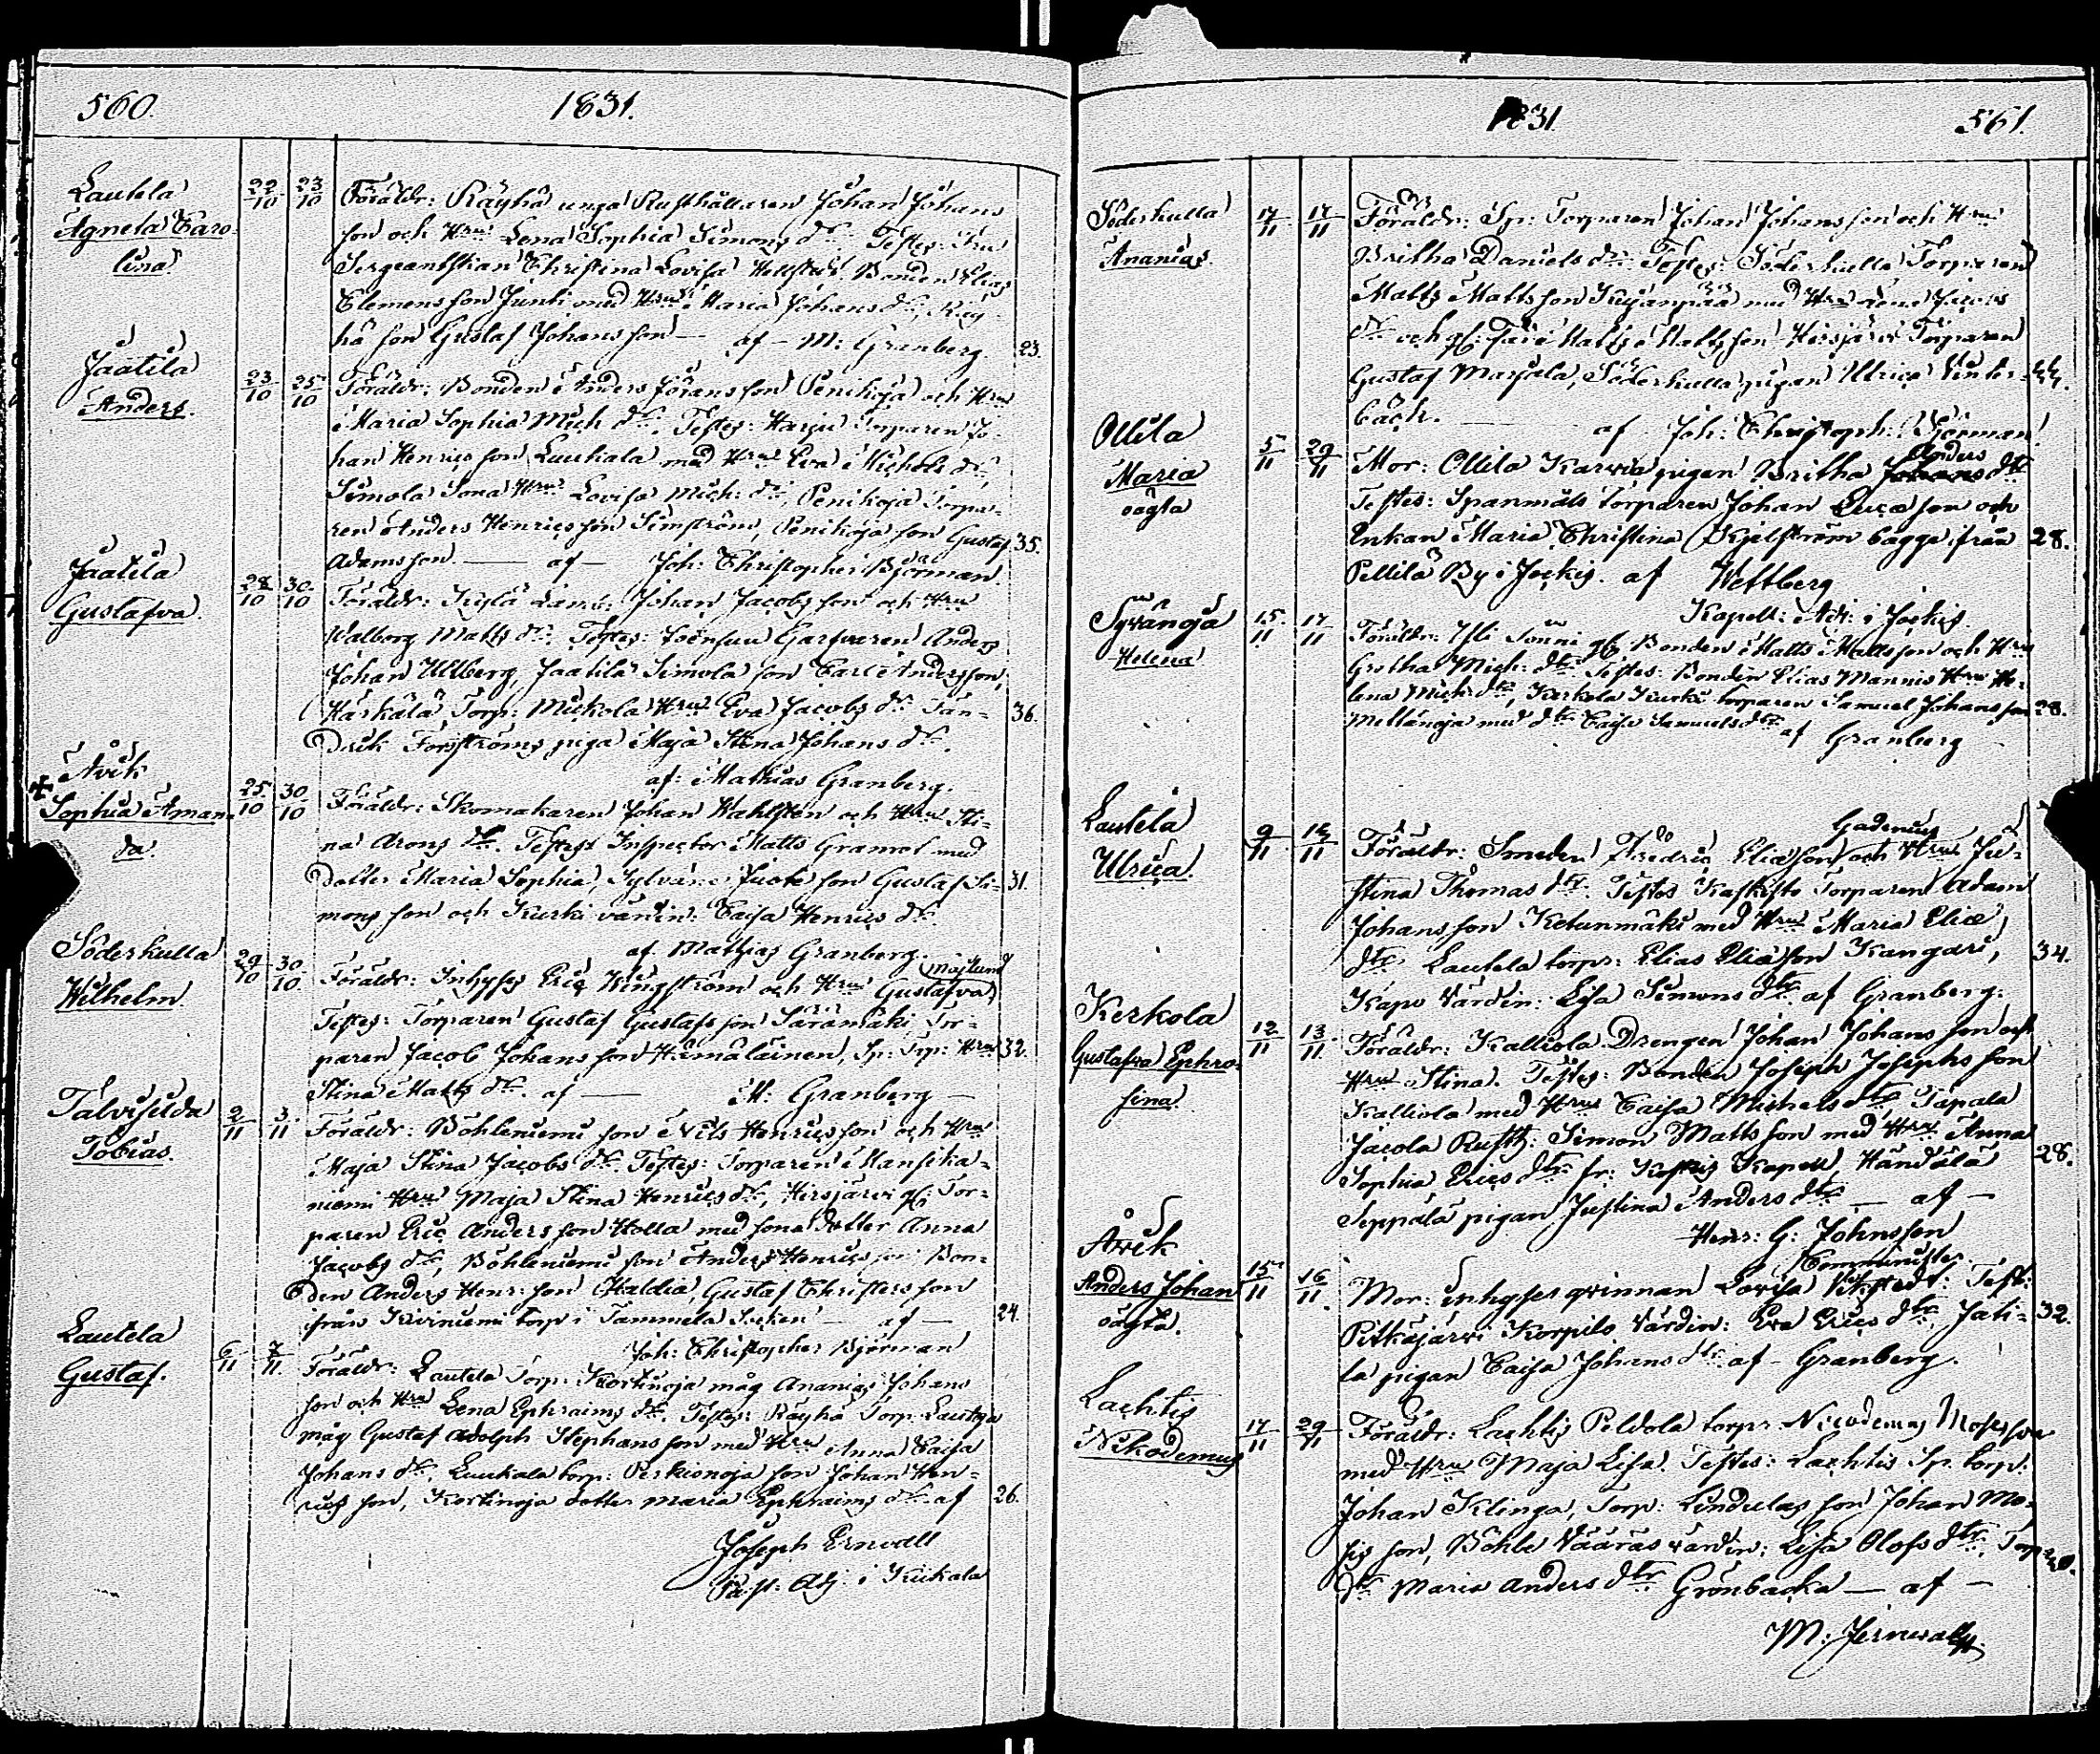 560.
1831.
Lautela
Agneta Caro-
lina.
22/10 23/10
Föräldr: Räyhä unga Rusthållaren Johan Johans
son och Hru Lena Sophia Simons dr. Testes: Fru
Sergeantskan Christina Lovisa Bonden Elias
Clemens son Junti med Hru Maria Johans dr, Räy-
hä son Gustaf Johans son — af — M: Granberg. 23.
Jaatila
Anders.
23/10 25/10
Föräldr: Bonden Anders Jörans son Penikoja och Hru
Maria Sophia Mich dr. Testes: Harju Torparen Jo-
han Henrics son Luukala med Hru Eva Michels dr,
Simola Sona Hru Lovisa Mich: dr, Penikoja Torpa-
ren Anders Henrics son Simström, Penikoja son Gustaf 35.
Adams son. — af — Joh: Christopher Björman.
Jaatila
Gustafva.
28/10 30/10
Föräldr: Kylä Johan Jacobs son och Hru
Walborg Matts dr. Testes: Garfvaren Anders
Johan Ullberg, Jaatila Simola son Carl Andersson,
Härkälä Torp: Mickola Hru Eva Jacobs dr Fän- 36.
drik Forsströms piga Maja Stina Johans dr.
af: Mathias Granberg.
Avik
Sophia Aman-
da.
25/10 30/10
Föräldr: Skomakaren Johan Wahlsten och Hru Sti-
na Arons dr. Testes: Inspector Matts Granrot med
dotter Maria Sophia, Sylväne Juote son Gustaf Si- 31.
mons son och Kurki värdin: Caisa Henrics dr.
af Mathias Granberg.
Söderkulla
Wilhelm
29/10 30/10
Föräldr: Inhyses Eric Kingström och Hru Gustafva Mojlund
Testes: Torparen Gustaf Gustafs son Särämäki, Tor-
paren Jacob Johans son Hämäläinen, Sp: Torp: Hru 32.
Stina Matts dr. af — M: Granberg —
Talvisilda
Tobias.
2/11 3/11
Föräldr: Böhleniemi son Nils Henrics son och Hru
Maja Stina Jacobs dr. Testes: Torparen Mansika-
niemi Hru Maja Stina Henrics dr, Hirsjärvi gl: Tor-
paren Eric Anders son Holla med sona dotter Anna
Jacobs dr, Böhleniemi son Anders Henrics son Bon-
den Anders Henr: son Haldia, Gustaf Christers son
ifrån Kiviniemi torp i Tammela Socken — af — 24.
Joh: Christopher Björman
Lautela
Gustaf.
6/11 7/11
Föräldr: Lautela Torp: Kortinoja måg Ananias Johans
son och Hru Lena Ephraims dr. Testes: Räyhä Torp: Lautoja
måg Gustaf Adolph Stephans son med Hru Anna Caisa
Johans dr, Luukala torp: Perkionoja son Johan Hen-
rics son, Kortinoja dotter Maria Ephraims dr. af 26.
Joseph Ernvall
Past: Adj: i Kiikala
1831
561.
Söderkulla
Ananias.
17/11 17/11
Föräldr: Sp: Torparen Johan Johans son och Hru
Britha Daniels dr. Testes: Söderkulla Torparen
Matts Matts son Kujanpää med Hru Lena Jacobs
dr och gl: Far Matts Matts son Hirsjärvi Torparen
Gustaf Marjala, Söderkulla pigan Ulrica Vinter-
bäck. — af Joh: Christoph: Björman
Ollila
Maria
oägta
5/11 29/11
Mor: Ollila Karvia pigan Britha Anders dtr
Testes: Spanmåls torparen Johan Lucæ son och
Enkan Maria Christina Kjelström bagge ifrån 28.
Pellilä By i Jockis. af Wettberg
Kapell: Adj: i Jockis.
Syvänoja
Helena
15/11 17/11
Föräldr: Yli Sönni gl Bonden Matts Matts son och Hru
Gretha Mich: dtr. Testes: Bonden Elias Mannis Hru He-
lena Mich: dtr, Kerkola Kurki torparen Samuel Johans son 28.
Mellänoja med dtr Caisa Samuels dtr af Granberg
Lautela
Ulrica.
9/11 12/11
Föräldr: Smeden Fredric Eliæ son Gadenius och Hru Ju-
stina Thomas dtr. Testes Torparen Adam
Johans son Ketunmäki med Hru Maria Eliæ
dtr Lautela torpr: Elias Eliæ son Kangari, 34.
Kapo Värdin: Lisa Simons dtr af Granberg.
Kerkola
Gustafva Ephro-
sina.
12/11 13/11
Föräldr: Kalliola Drengen Johan Johans son och
Hru Stina. Testes: Bonden Joseph Josephs son
Kalliola med Hru Caisa Michels dtr Tapala
Jacola Rusth: Simon Matts son med Hru Anna
Sophia Erics dtr fr: Koskis Kapell, Händälä 28.
Seppälä pigan Justina Anders dtr — af —
Henr: G: Johnsson
Comminister
Avik
Anders Johan
oägta.
15/11 16/11
Mor: inhyses qvinnan Lovisa Test:
Pitkäjärvi Korpilo Värdin: Eva Erics dtr, Jati- 32.
la pigan Caisa Johans dtr af — Granberg.
Lachtis
Nikodemus
17/11 29/11
Föräldr: Lachtis Peldola torpr Nicodemus Moses son
med Hru Maja Lisa. Testes: Lachtis Sp: torp:
Johan Klinga, Torp: Lindulas son Johan Mo-
sis son, Böhle Vääräs värdin: Lisa Olofs dtr, Torp
dtr Maria Anders dtr Grönbacka — af —
M: Jernvall